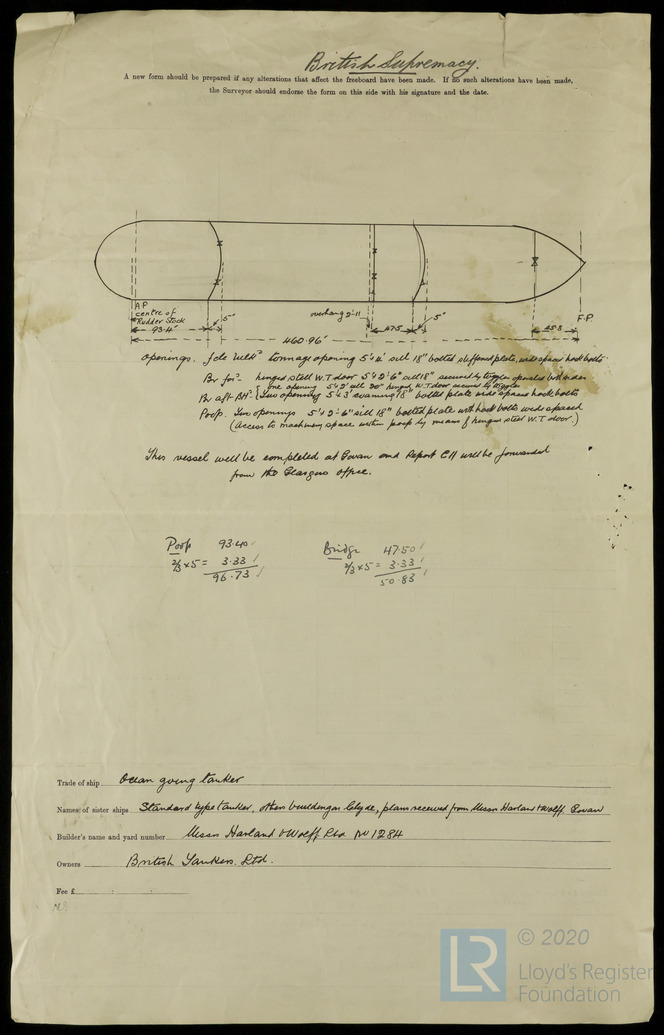 British Supremacy.
A new form should be prepared if any alterations that affect the freeboard have been made. If no such alterations have been made,
the Surveyor should endorse the form on this side with his signature and the date.
AP
centre of
Rudder Stock
93.4'
5'
overhang 2'-11
47.5
5'
F.P.
45.8
460.96'
openings. tonnage opening 5' x 4' sill 18" bolted plate, wide spaced hook bolts.
Br for'd hinged steel W.T door 5' x 2'-6" sill 18" secured by toggles operated both sides
one opening 5' x 2' sill 20" hinged W.T door secured by toggles
Br aft Bh'd Two openings 5' x 3' 18" bolted plate wide spaced hook bolts
Poop. Two openings 5' x 2'-6" sill 18" bolted plate with hook bolts wide spaced
(Access to machinery space within poop by means of hinged steel W.T door.)
This vessel will be completed at Govan and Report C11 will be forwarded
from the Glasgow office.
Poop 93.40
2/3 x 5 = 3.33
96.73
Bridge 47.50
2/3 x 5 = 3.33
50.83
Trade of ship Ocean going tanker
Names of sister ships Standard type tanker, others building on Clyde, plans received from Messrs Harland & Wolff Govan
Builder's name and yard number Messrs Harland & Wolff Ltd No 1284
Owners British Tankers. Ltd.
Fee £ : :
LR
© 2020
Lloyd's Register
Foundation